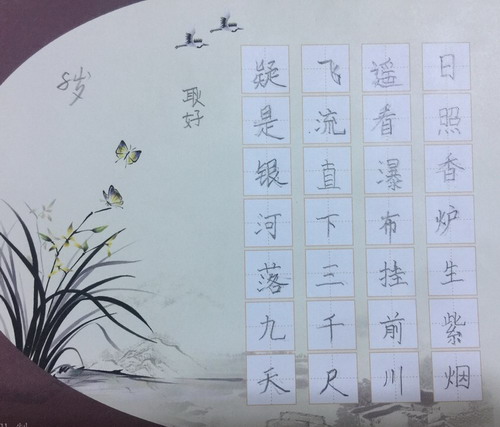 日照香炉生紫烟
遥看瀑布挂前川
飞流直下三千尺
疑是银河落九天
耿好
8岁